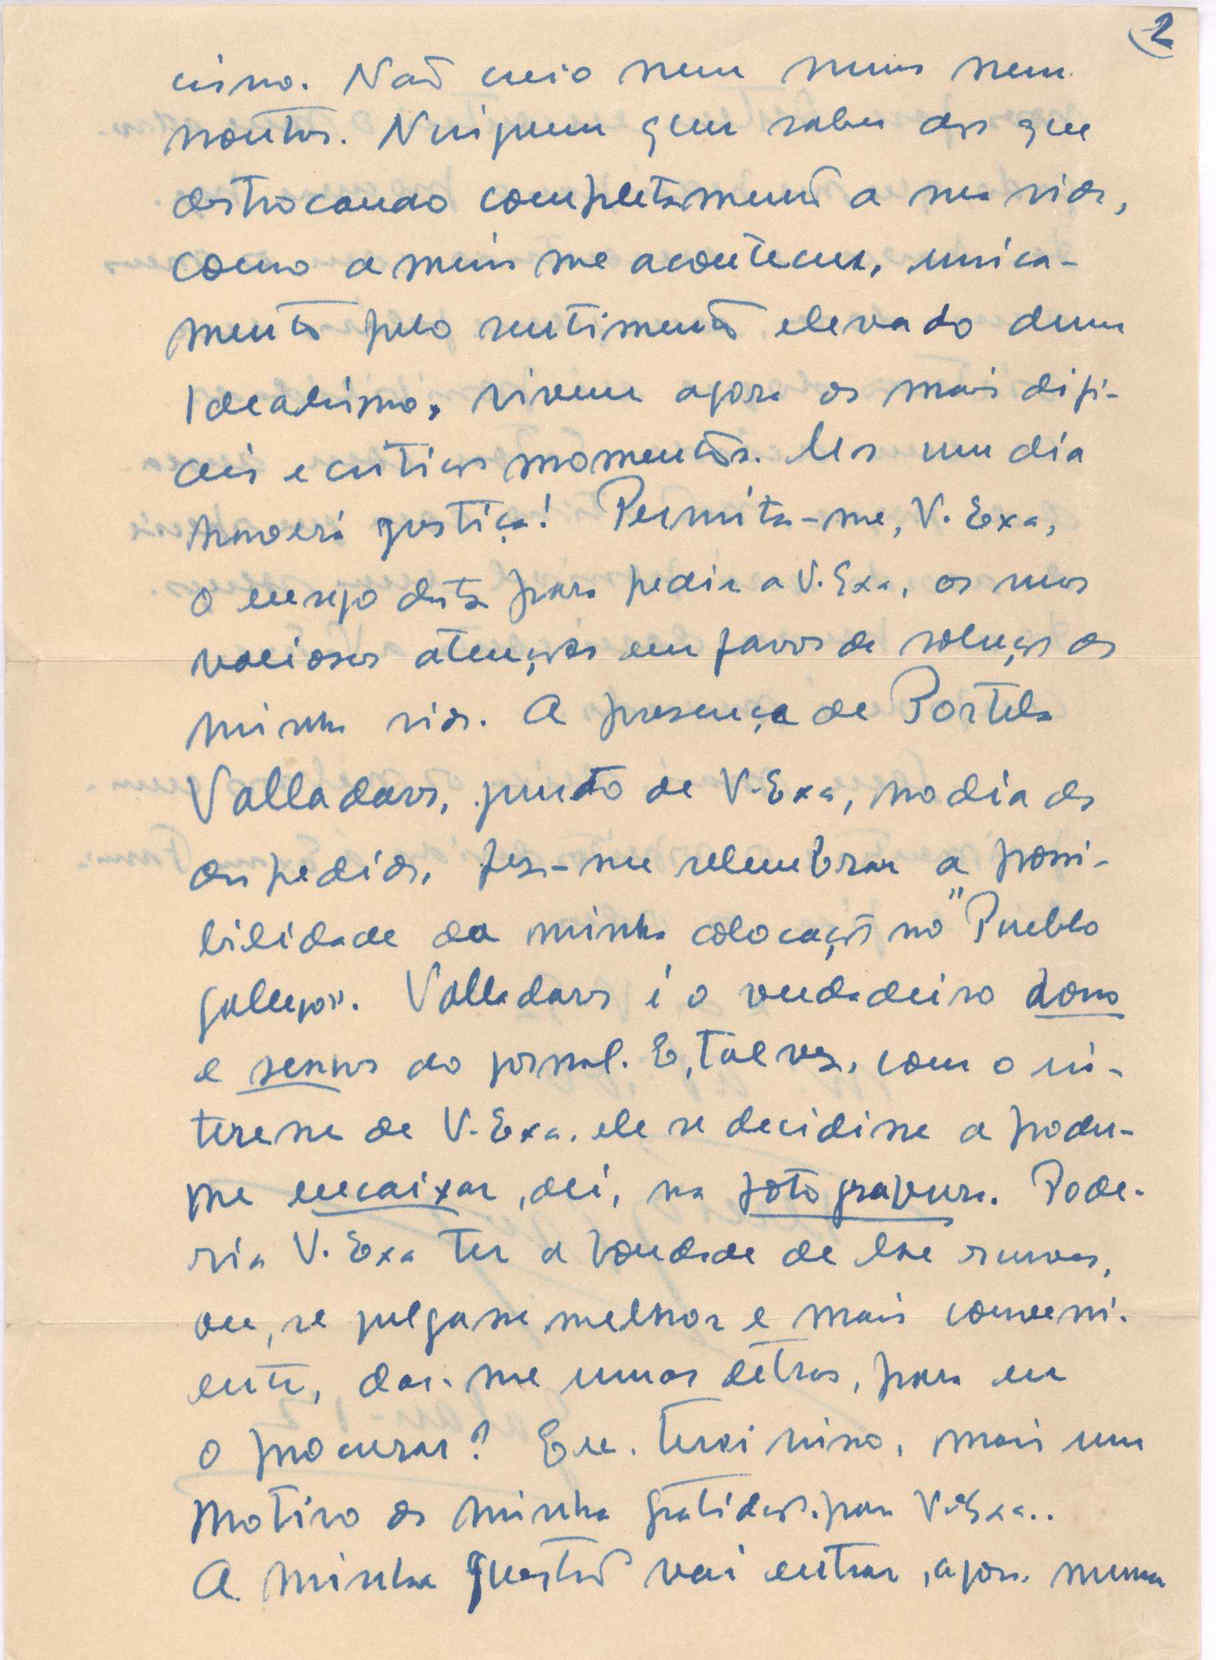 2
cismo. Não creio nem nuns nem
noutros. Ninguem quer saber dos que
destroçando completamente a sua vida,
como a mim me aconteceu, unica-
mente pelo sentimento elevado dum
Idealismo, vivem agora os mais difi-
ceis e criticos momentos. Mas um dia
haverá justiça! Permita-me, V. Exa,
o ensejo desta para pedir a V. Exa, as suas
valiosas atenções em favor da solução da
minha vida. A presença de Portela
Valladares, junto de V. Exa, no dia da
despedida, fez-me relembrar a possi-
bilidade da minha colocação no "Pueblo
gallego". Valladares é o verdadeiro dono
e senhor do jornal. E, talvez, com o in-
teresse de V. Exa. ele se decidisse a poder-
me encaixar, ali, na fotogravura. Pode-
ria V. Exa ter a bondade de lhe escrever,
ou, se julgasse melhor e mais conveni-
ente, dar-me umas letras, para eu
o procurar? Eu. terei nisso, mais um
motivo da minha gratidão. para V. Exa..
A minha questão vai entrar, agora numa